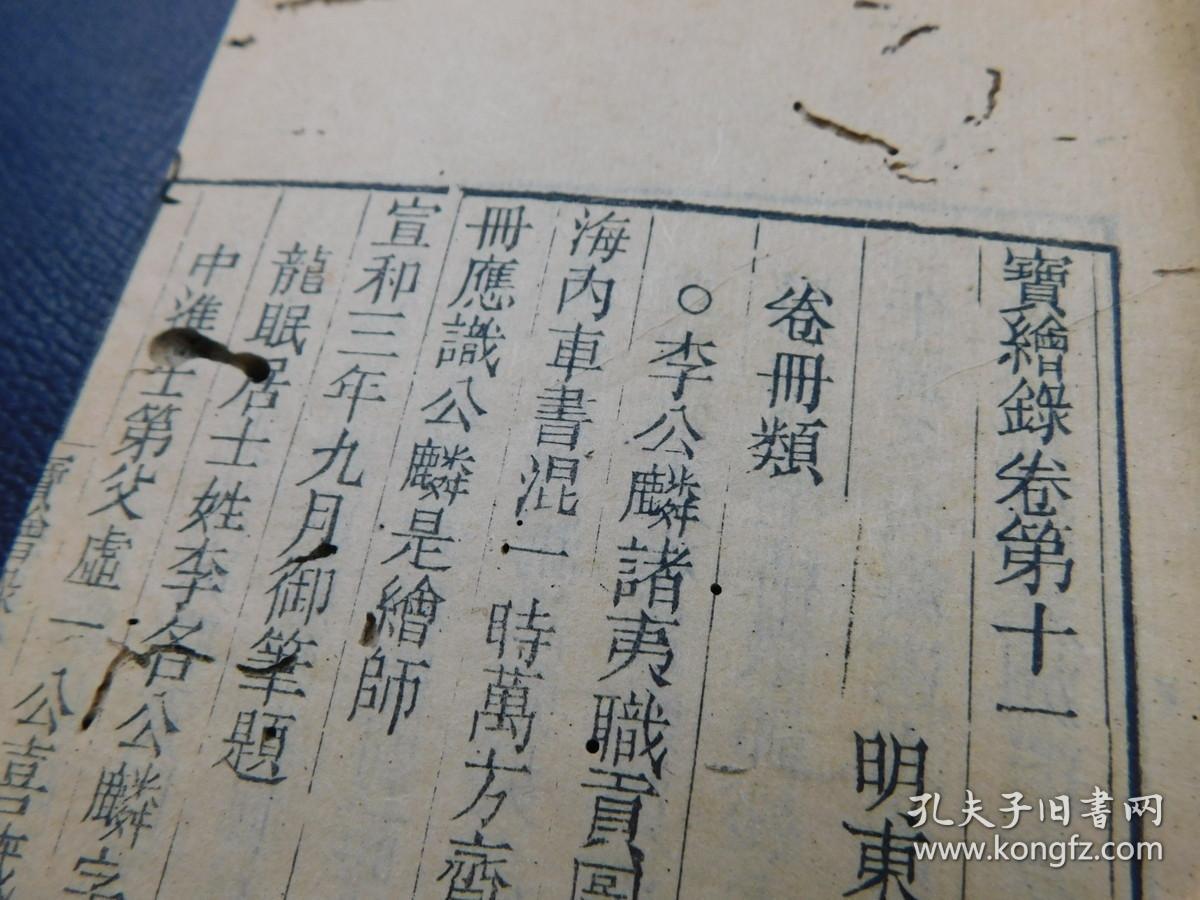 寶繪錄卷第十一
明東
卷冊類
○李公麟諸夷職貢圖
海內車書混一時萬方齊
冊應識公麟是繪師
宣和三年九月御筆題
龍眠居士姓李名公麟字
中進士第父虛一公喜
寶繪錄
孔夫子旧书网
www.kongfz.com